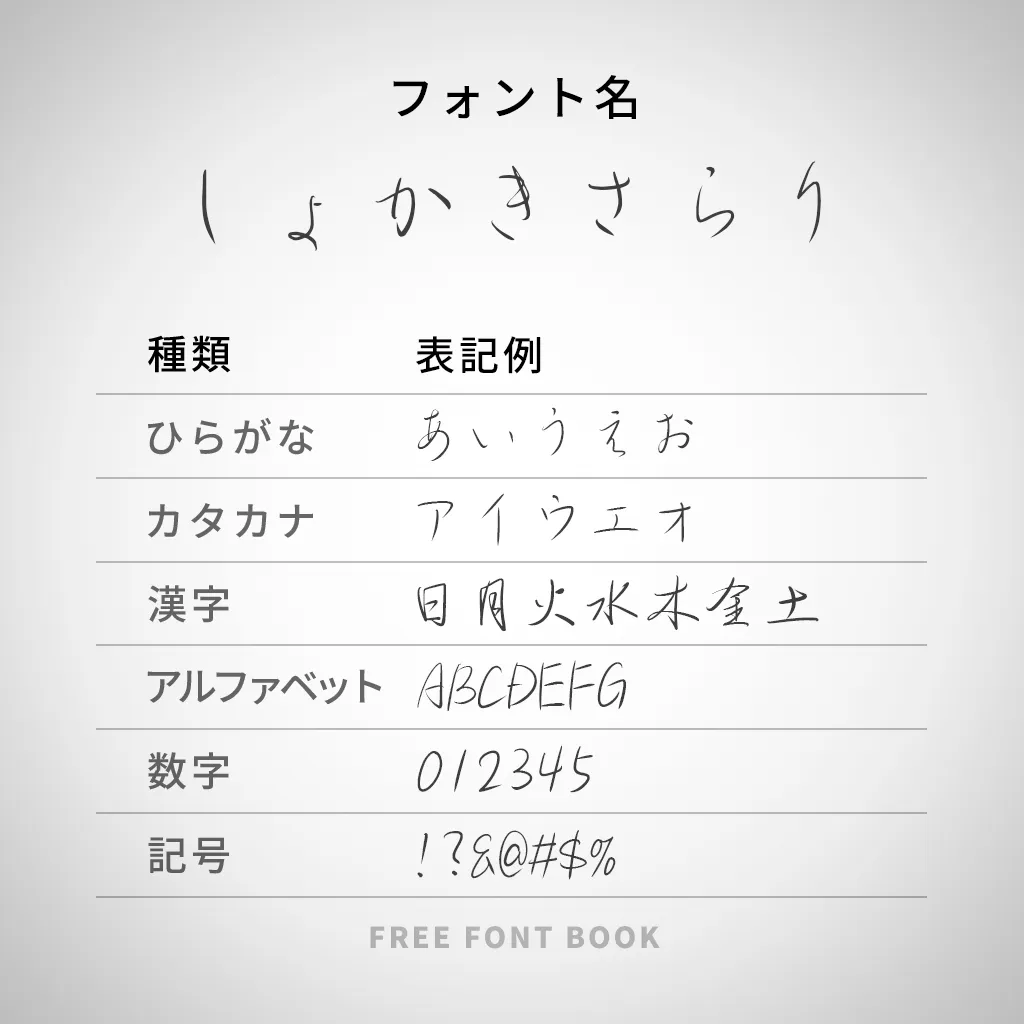 フォント名
しょかきさらり
種類 表記例
ひらがな あいうえお
カタカナ アイウエオ
漢字 日月火水木金土
アルファベット ABCDEFG
数字 012345
記号 !?&@#$%
FREE FONT BOOK